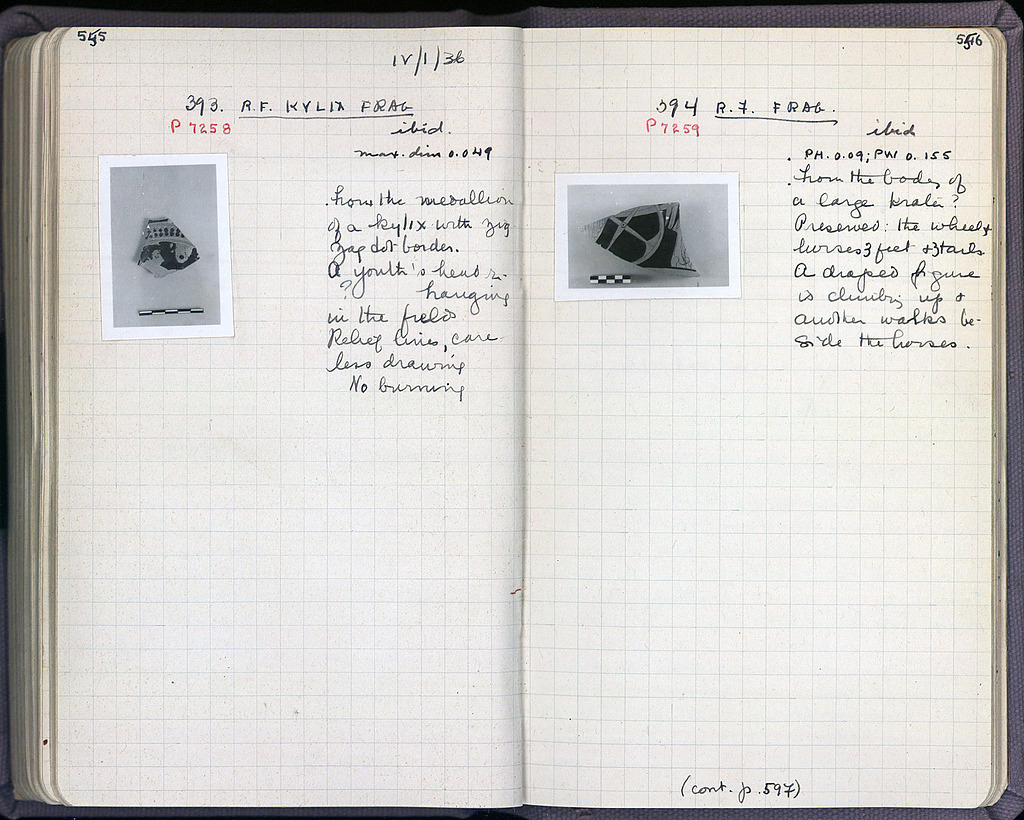 555
IV/1/36
393. R.F. KYLIX FRAG
P 7258
ibid.
max. dim 0.049
from the medallion
of a kylix with zig
zag dot border.
A youth's head r.
? hanging
in the field
Relief lines, care-
less drawing
No burning
556
394 R.F. FRAG.
P 7259
ibid
PH. 0.09; PW 0.155
from the body of
a large krater?
Preserved: the wheel &
horses 3 feet & 3 tails
A draped figure
is climbing up &
another walks be-
side the horses.
(cont. p. 597)